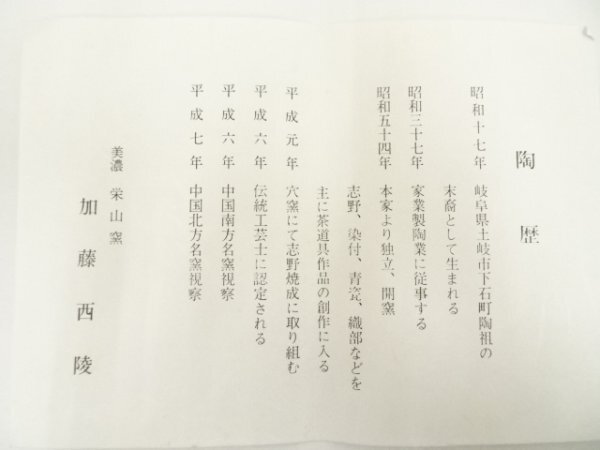 陶歴
昭和十七年 岐阜県土岐市下石町陶祖の
末裔として生まれる
昭和三十七年 家業製陶業に従事する
昭和五十四年 本家より独立、開窯
志野、染付、青瓷、織部などを
主に茶道具作品の創作に入る
平成元年 穴窯にて志野焼成に取り組む
平成六年 伝統工芸士に認定される
平成六年 中国南方名窯視察
平成七年 中国北方名窯視察
美濃 栄山窯
加藤西陵